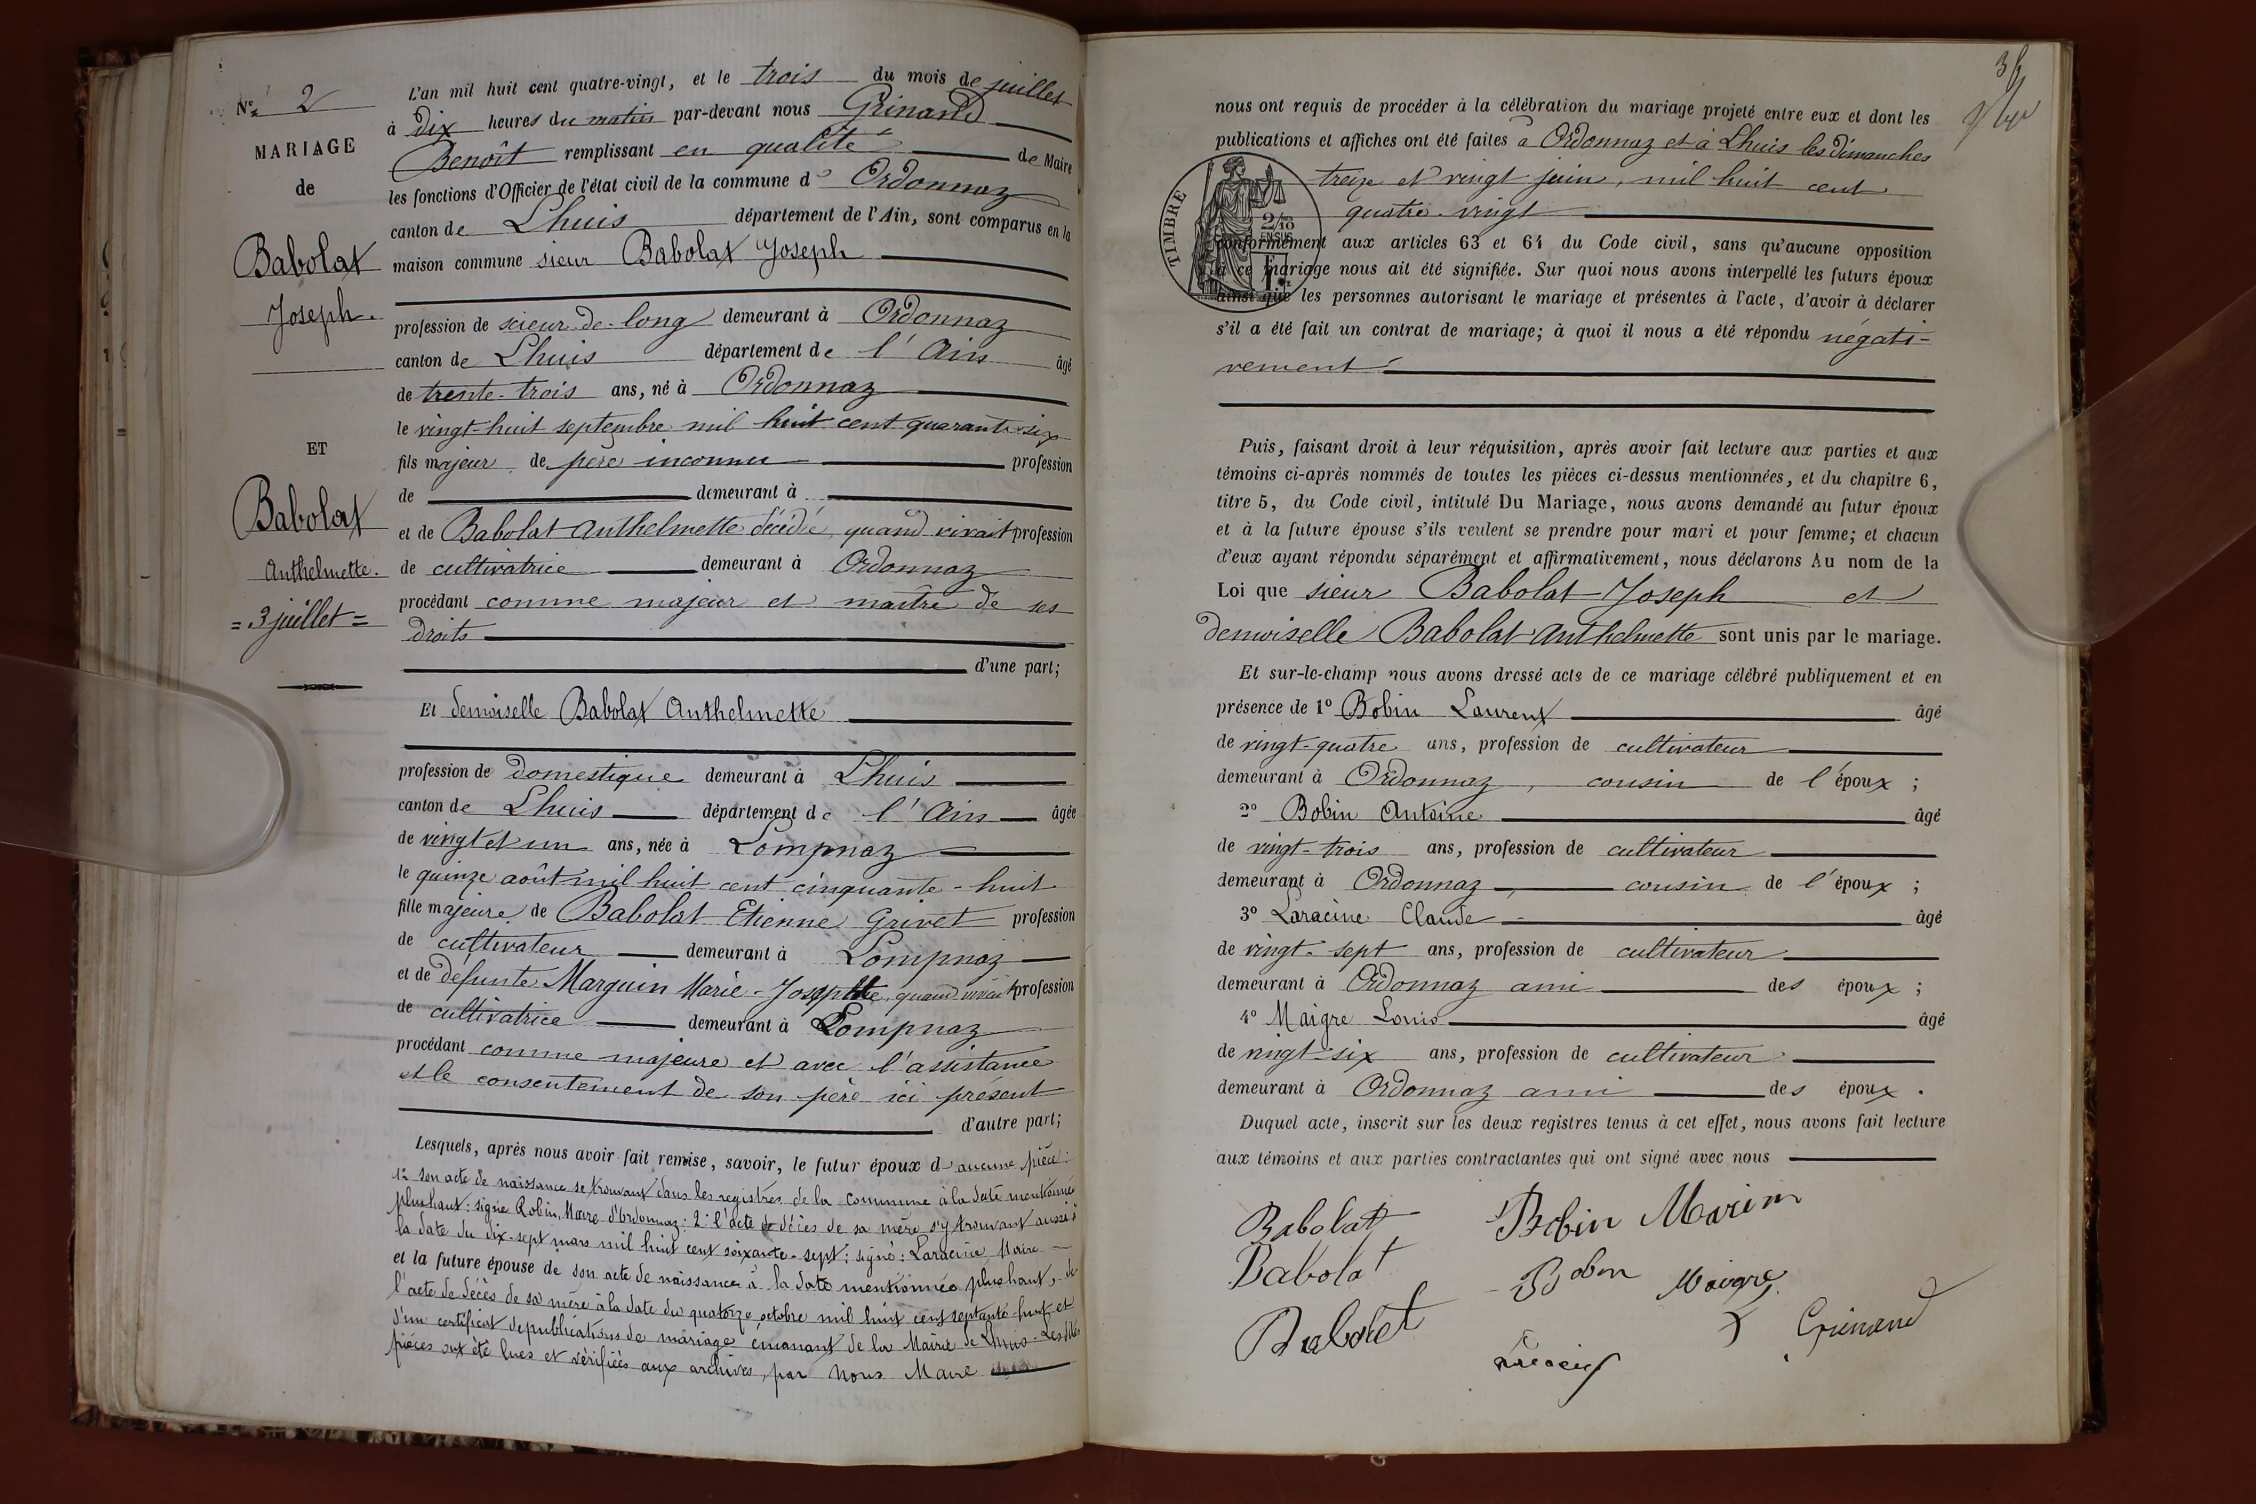 N° 2
MARIAGE
de
Babolat
Joseph.
ET
Babolat
Anthelmette.
= 3 juillet =
L'an mil huit cent quatre-vingt, et le trois du mois de juillet
à dix heures du matin par-devant nous Grinand
Benoît remplissant en qualité de Maire
les fonctions d'Officier de l'état civil de la commune d' Ordonnaz
canton de Lhuis département de l'Ain, sont comparus en la
maison commune sieur Babolat Joseph
profession de scieur-de-long demeurant à Ordonnaz
canton de Lhuis département de l'Ain âgé
de trente-trois ans, né à Ordonnaz
le vingt-huit septembre mil huit cent quarante-six
fils majeur de père inconnu profession
de demeurant à
et de Babolat Anthelmette décédée, quand vivait profession
de cultivatrice demeurant à Ordonnaz
procédant comme majeur et maître de ses
droits
d'une part;
Et demoiselle Babolat Anthelmette
profession de domestique demeurant à Lhuis
canton de Lhuis département de l'Ain âgée
de vingt et un ans, née à Lompnaz
le quinze août mil huit cent cinquante-huit
fille majeure de Babolat Etienne Grivet profession
de cultivateur demeurant à Lompnaz
et de defunte Marguin Marie-Josephte, quand vivait profession
de cultivatrice demeurant à Lompnaz
procédant comme majeure et avec l'assistance
et le consentement de son père ici présent
d'autre part;
Lesquels, après nous avoir fait remise, savoir, le futur époux d'aucune pièce:
1° son acte de naissance se trouvant dans les registres de la commune à la date mentionnée
plus haut: signé Robin, Maire d'Ordonnaz: 2° l'acte de décès de sa mère s'y trouvant aussi à
la date du dix-sept mars mil huit cent soixante-sept: signé: Laracine Maire
et la future épouse de son acte de naissance à la date mentionnée plus haut, de
l'acte de décès de sa mère à la date du quatorze octobre mil huit cent septante-huit et
d'un certificat de publications de mariage émanant de la Mairie de Lhuis. Les dites
pièces ont été lues et vérifiées aux archives, par Nous Maire
nous ont requis de procéder à la célébration du mariage projeté entre eux et dont les
publications et affiches ont été faites à Ordonnaz et à Lhuis les dimanches
treize et vingt juin, mil huit cent
quatre-vingt
TIMBRE
2/10
EN SUS
conformément aux articles 63 et 64 du Code civil, sans qu'aucune opposition
à ce mariage nous ait été signifiée. Sur quoi nous avons interpellé les futurs époux
ainsi que les personnes autorisant le mariage et présentes à l'acte, d'avoir à déclarer
s'il a été fait un contrat de mariage; à quoi il nous a été répondu négati-
vement
Puis, faisant droit à leur réquisition, après avoir fait lecture aux parties et aux
témoins ci-après nommés de toutes les pièces ci-dessus mentionnées, et du chapitre 6,
titre 5, du Code civil, intitulé Du Mariage, nous avons demandé au futur époux
et à la future épouse s'ils veulent se prendre pour mari et pour femme; et chacun
d'eux ayant répondu séparément et affirmativement, nous déclarons Au nom de la
Loi que sieur Babolat Joseph et
demoiselle Babolat Anthelmette sont unis par le mariage.
Et sur-le-champ nous avons dressé acte de ce mariage célébré publiquement et en
présence de 1° Bobin Laurent âgé
de vingt-quatre ans, profession de cultivateur
demeurant à Ordonnaz, cousin de l'époux;
2° Bobin Antoine âgé
de vingt-trois ans, profession de cultivateur
demeurant à Ordonnaz, cousin de l'époux;
3° Laracine Claude âgé
de vingt-sept ans, profession de cultivateur
demeurant à Ordonnaz ami des époux;
4° Maigre Louis âgé
de vingt-six ans, profession de cultivateur
demeurant à Ordonnaz ami des époux.
Duquel acte, inscrit sur les deux registres tenus à cet effet, nous avons fait lecture
aux témoins et aux parties contractantes qui ont signé avec nous
Babolat Bobin Marin
Babolat Bobin Maigre
Babolat Grinand